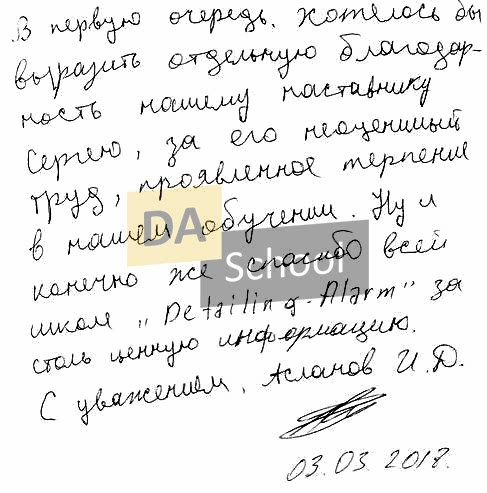 В первую очередь, хотелось бы
выразить отдельную благодар-
ность нашему наставнику
Сергею, за его неоценимый
труд, проявленное терпение
в нашем обучении. Ну и
конечно же спасибо всей
школе „Detailing-Alarm" за
столь ценную информацию.
С уважением, Асланов И.Д.
03.03.2017.
DA
School